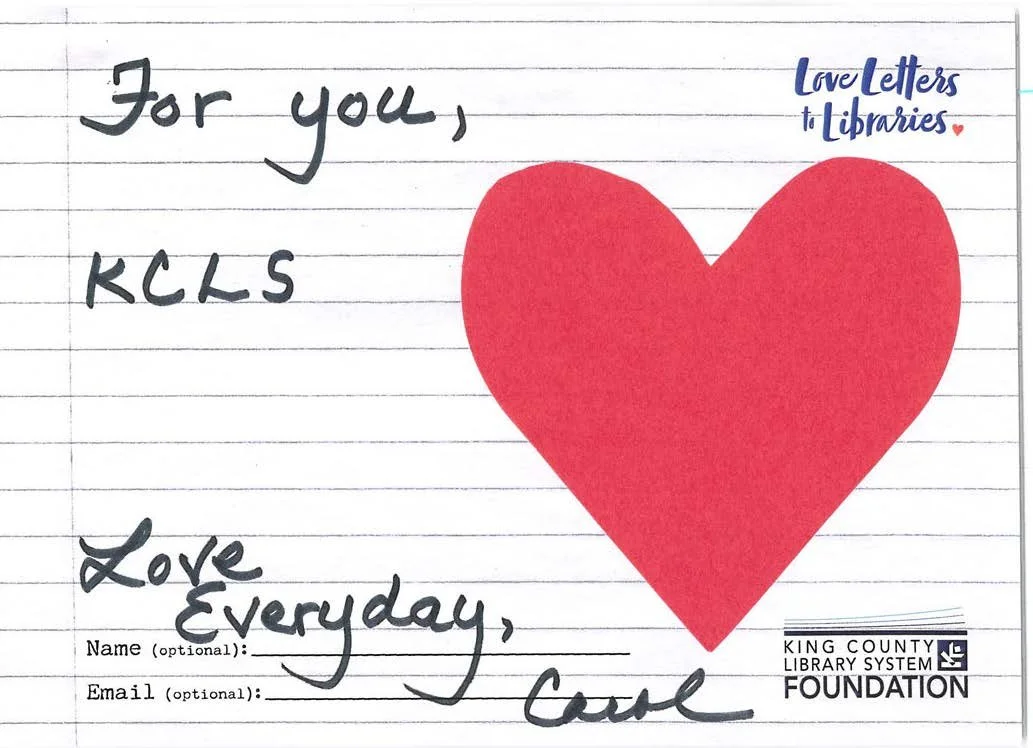 For you,
Love Letters
to Libraries
KCLS
Love
Everyday,
Name (optional):
Email (optional):
Carol
KING COUNTY
LIBRARY SYSTEM
FOUNDATION